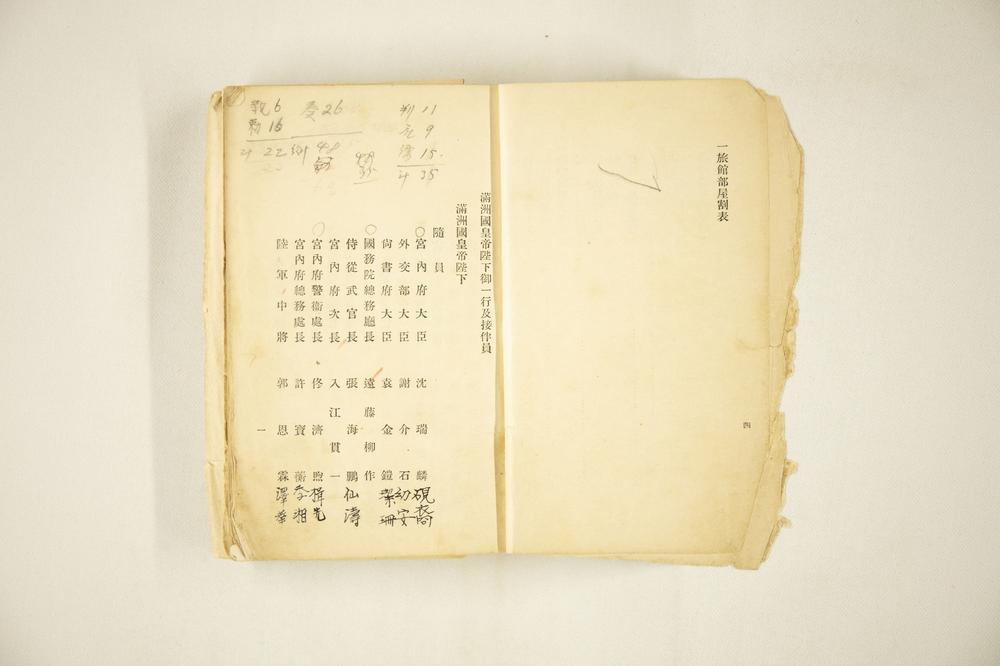 一旅館部屋割表
四
滿洲國皇帝陛下御一行及接伴員
滿洲國皇帝陛下
隨員
○宮內府大臣 沈瑞麟 硯裔
外交部大臣 謝介石 幼安
尙書府大臣 袁金鎧 潔珊
○國務院總務廳長 遠藤柳作
侍從武官長 張海鵬 仙濤
宮內府次長 入江貫一
○宮內府警衞處長 佟濟煦 楫先
宮內府總務處長 許寶蘅 季湘
陸軍中將 郭恩霖 澤華
一
6
16
22
26
48
11
9
15
35